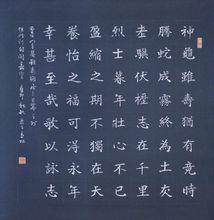 神龜雖壽猶有竟時
騰蛇成霧終為土灰
老驥伏櫪志在千里
烈士暮年壯心不已
盈縮之期不獨在天
養怡之福可得永年
幸甚至哉歌以詠志